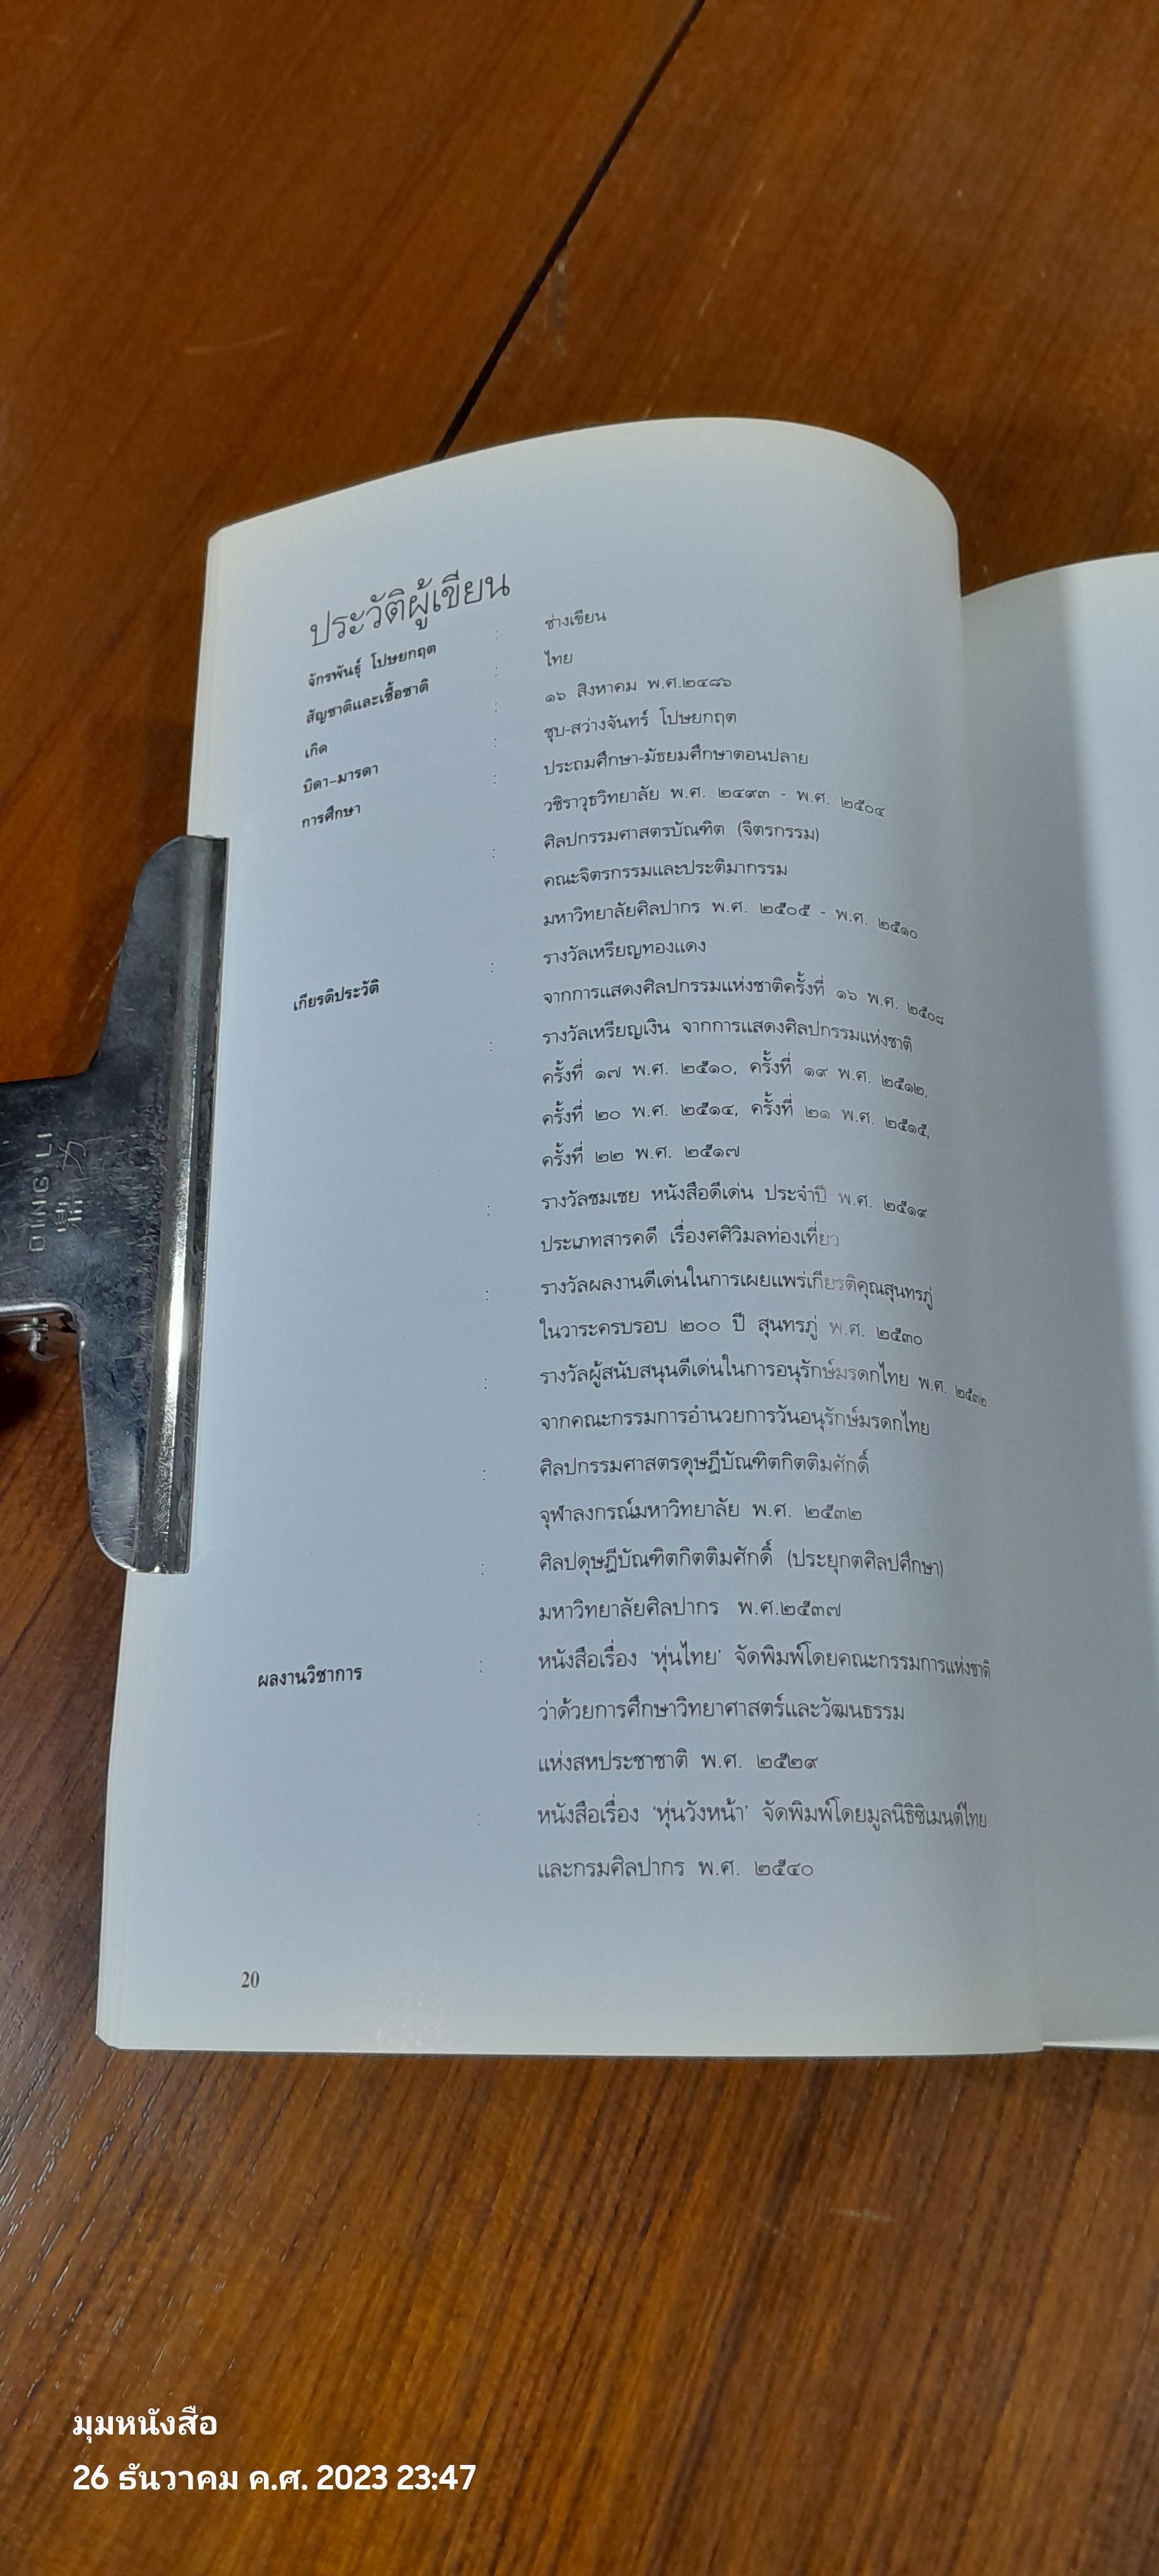 ประวัติผู้เขียน
จักรพันธุ์ โปษยกฤต : ช่างเขียน
สัญชาติและเชื้อชาติ : ไทย
เกิด : ๑๖ สิงหาคม พ.ศ.๒๔๘๖
บิดา-มารดา : ชุบ-สว่างจันทร์ โปษยกฤต
การศึกษา : ประถมศึกษา-มัธยมศึกษาตอนปลาย
วชิราวุธวิทยาลัย พ.ศ. ๒๔๙๓ - พ.ศ. ๒๕๐๔
: ศิลปกรรมศาสตรบัณฑิต (จิตรกรรม)
คณะจิตรกรรมและประติมากรรม
มหาวิทยาลัยศิลปากร พ.ศ. ๒๕๐๕ - พ.ศ. ๒๕๑๐
เกียรติประวัติ : รางวัลเหรียญทองแดง
จากการแสดงศิลปกรรมแห่งชาติครั้งที่ ๑๖ พ.ศ. ๒๕๐๘
: รางวัลเหรียญเงิน จากการแสดงศิลปกรรมแห่งชาติ
ครั้งที่ ๑๗ พ.ศ. ๒๕๑๐, ครั้งที่ ๑๙ พ.ศ. ๒๕๑๒,
ครั้งที่ ๒๐ พ.ศ. ๒๕๑๔, ครั้งที่ ๒๑ พ.ศ. ๒๕๑๕,
ครั้งที่ ๒๒ พ.ศ. ๒๕๑๗
: รางวัลชมเชย หนังสือดีเด่น ประจำปี พ.ศ. ๒๕๑๙
ประเภทสารคดี เรื่องศศิวิมลท่องเที่ยว
: รางวัลผลงานดีเด่นในการเผยแพร่เกียรติคุณสุนทรภู่
ในวาระครบรอบ ๒๐๐ ปี สุนทรภู่ พ.ศ. ๒๕๓๐
: รางวัลผู้สนับสนุนดีเด่นในการอนุรักษ์มรดกไทย พ.ศ. ๒๕๓๒
จากคณะกรรมการอำนวยการวันอนุรักษ์มรดกไทย
: ศิลปกรรมศาสตรดุษฎีบัณฑิตกิตติมศักดิ์
จุฬาลงกรณ์มหาวิทยาลัย พ.ศ. ๒๕๓๒
: ศิลปดุษฎีบัณฑิตกิตติมศักดิ์ (ประยุกตศิลปศึกษา)
มหาวิทยาลัยศิลปากร พ.ศ.๒๕๓๗
ผลงานวิชาการ : หนังสือเรื่อง ‘หุ่นไทย’ จัดพิมพ์โดยคณะกรรมการแห่งชาติ
ว่าด้วยการศึกษาวิทยาศาสตร์และวัฒนธรรม
แห่งสหประชาชาติ พ.ศ. ๒๕๒๙
: หนังสือเรื่อง ‘หุ่นวังหน้า’ จัดพิมพ์โดยมูลนิธิซิเมนต์ไทย
และกรมศิลปากร พ.ศ. ๒๕๔๐
20
มุมหนังสือ
26 ธันวาคม ค.ศ. 2023 23:47